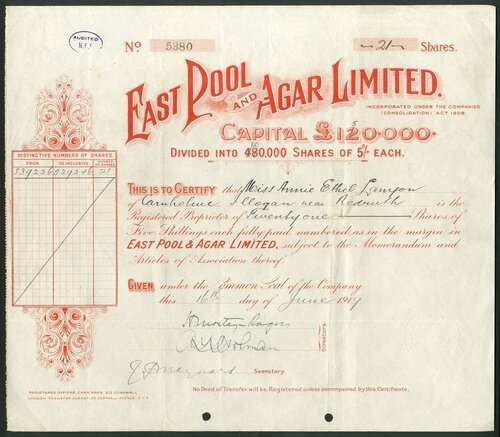 AUDITED
No 5380
—21— Shares.
EAST POOL AND AGAR LIMITED.
INCORPORATED UNDER THE COMPANIES
(CONSOLIDATION) ACT 1908.
CAPITAL £120.000.
DIVIDED INTO 480.000 SHARES OF 5/- EACH.
DISTINCTIVE NUMBERS OF SHARES
FROM TO INCLUSIVE NUMBER OF SHARES
539226 539246 21
THIS IS TO CERTIFY that Miss Annie Ethel Lanyon
of Carnholme Illogan near Redruth is the
Registered Proprietor of Twenty one Shares of
Five Shillings each fully paid, numbered as in the margin in
EAST POOL & AGAR LIMITED, subject to the Memorandum and
Articles of Association thereof
GIVEN under the Common Seal of the Company
this 16th day of June 1919
Directors.
Secretary.
REGISTERED OFFICES, CARN BREA, S.O. CORNWALL.
LONDON TRANSFER AGENCY
No Deed of Transfer will be Registered unless accompanied by this Certificate.